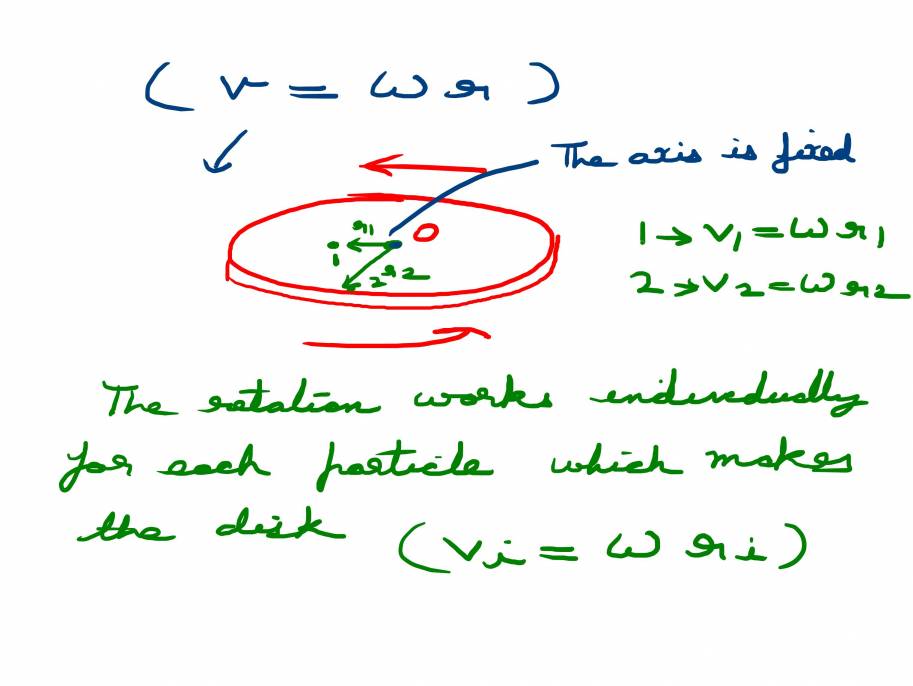 ( v = ω r )
The axis is fixed
O
r1
1
2 r2
1 → v1 = ω r1
2 → v2 = ω r2
The rotation works endividually
for each particle which makes
the disk (vi = ω ri)